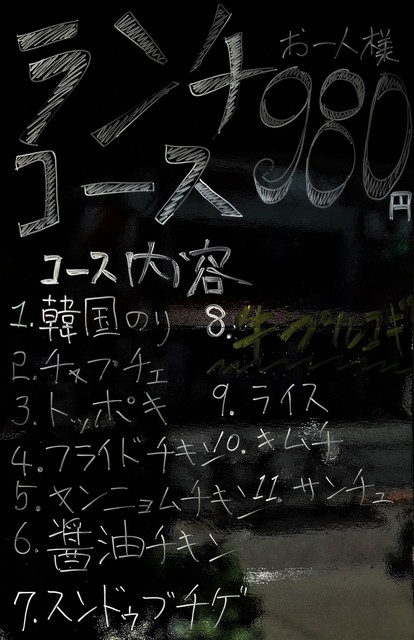 ランチ
お一人様
980
円
コース
コース内容
1.韓国のり
2.チャプチェ
3.トッポキ
4.フライドチキン
5.ヤンニョムチキン
6.醤油チキン
7.スンドゥブチゲ
8.牛プルコギ
9.ライス
10.キムチ
11.サンチュ